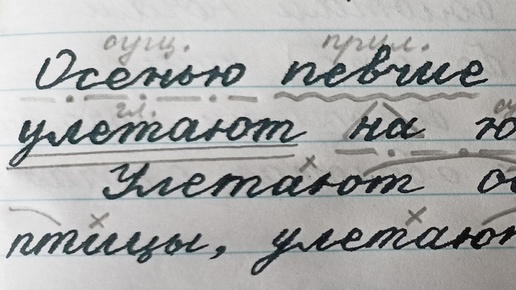 сущ. прил.
Осенью певчие
гл.
улетают на ю
Улетают о
птицы, улетают